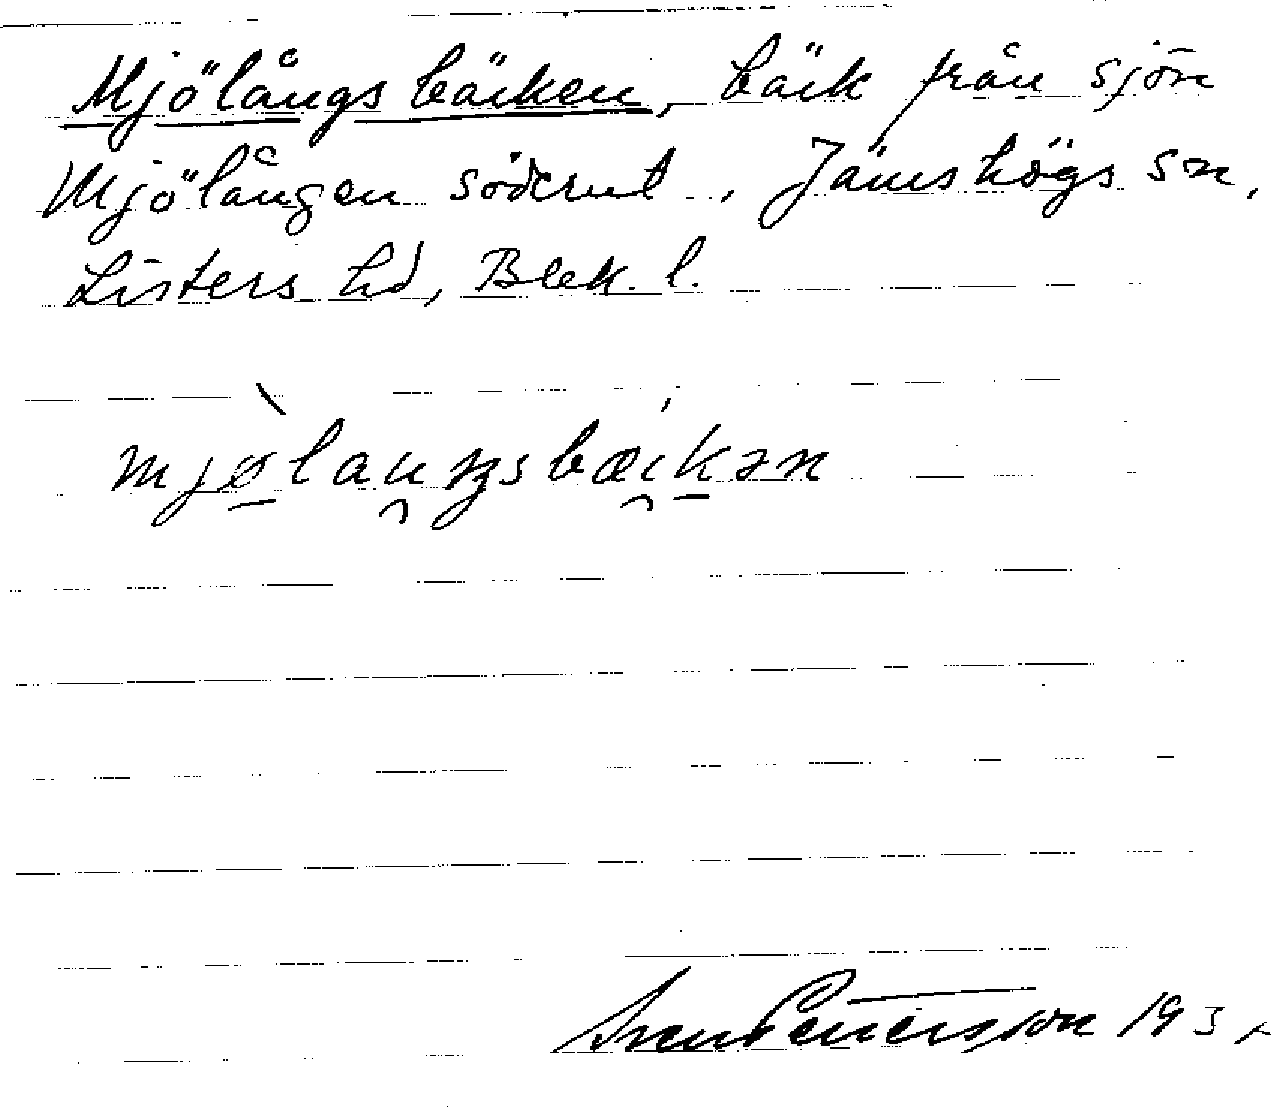 Mjölångsbäcken, bäck från sjön
Mjölången söderut. Jämshögs sn,
Listers hd, Blek. l.
mjø̱̀lau̯ŋsbæí̯ḵən
Sven Petersson 193